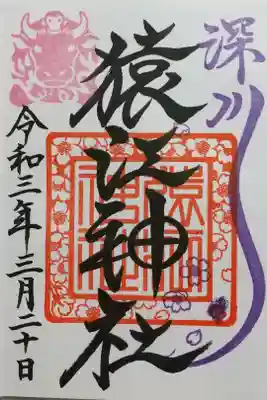 深川
猿江神社
令和三年三月二十日